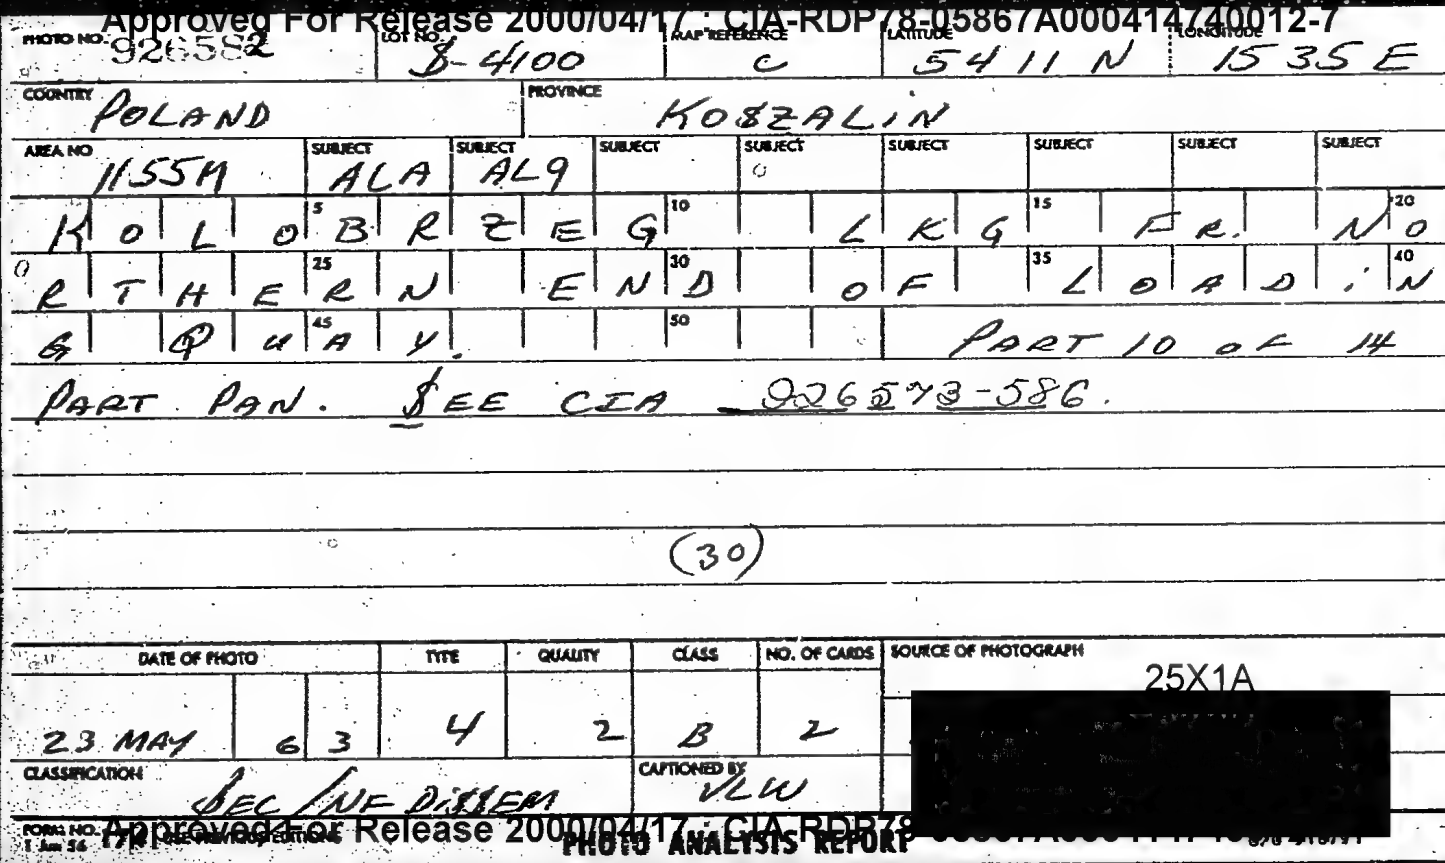 Approved For Release 2000/04/17 : CIA-RDP78-05867A000414740012-7
PHOTO NO. 926582 LOT NO. S-4100 MAP REFERENCE C LATITUDE 54 11 N LONGITUDE 15 35 E
COUNTRY POLAND PROVINCE KOSZALIN
AREA NO 1155M SUBJECT ALA SUBJECT AL9 SUBJECT SUBJECT SUBJECT SUBJECT SUBJECT SUBJECT
5 10 15 20
KOLOBRZEG LKG FR. NO
25 30 35 40
RTHERN END OF LOADIN
45 50
G QUAY. PART 10 OF 14
PART PAN. SEE CIA 926573-586.
(30)
DATE OF PHOTO TYPE QUALITY CLASS NO. OF CARDS SOURCE OF PHOTOGRAPH
25X1A
23 MAY 63 4 2 B 2
CLASSIFICATION SEC/NF DISSEM CAPTIONED BY VLW
FORM NO. PHOTO ANALYSIS REPORT
1 Jun 56
Approved For Release 2000/04/17 : CIA-RDP78